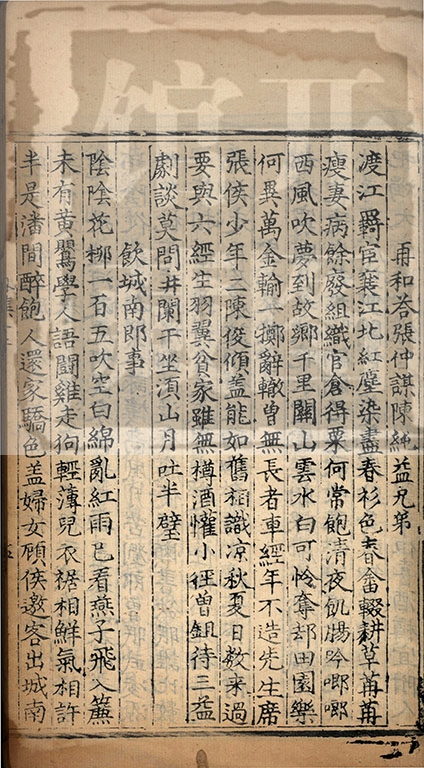 再和荅張仲謀陳純益兄弟
渡江羇宦褰江北紅塵染盡春衫色舂畬輟耕草苒苒
瘦妻病餘廢組織官倉得粟何常飽清夜飢腸吟唧唧
西風吹夢到故鄉千里關山雲水白可憐奪却田園樂
何異萬金輸一擲辭轍曽無長者車經年不造先生席
張侯少年二陳俊傾盖能如舊相識凉秋夏日数来過
要與六經生羽翼貧家雖無樽酒懽小徑曽鉏待三益
劇談莫問井闌干坐湏山月吐半壁
飲城南即事
陰陰花桞一百五吹空白綿亂紅雨已看燕子飛入簾
未有黄鸎學人語闘雞走狗輕薄兒衣裾相鮮氣相許
半是潘間醉飽人還家驕色盖婦女頋侯邀客出城南